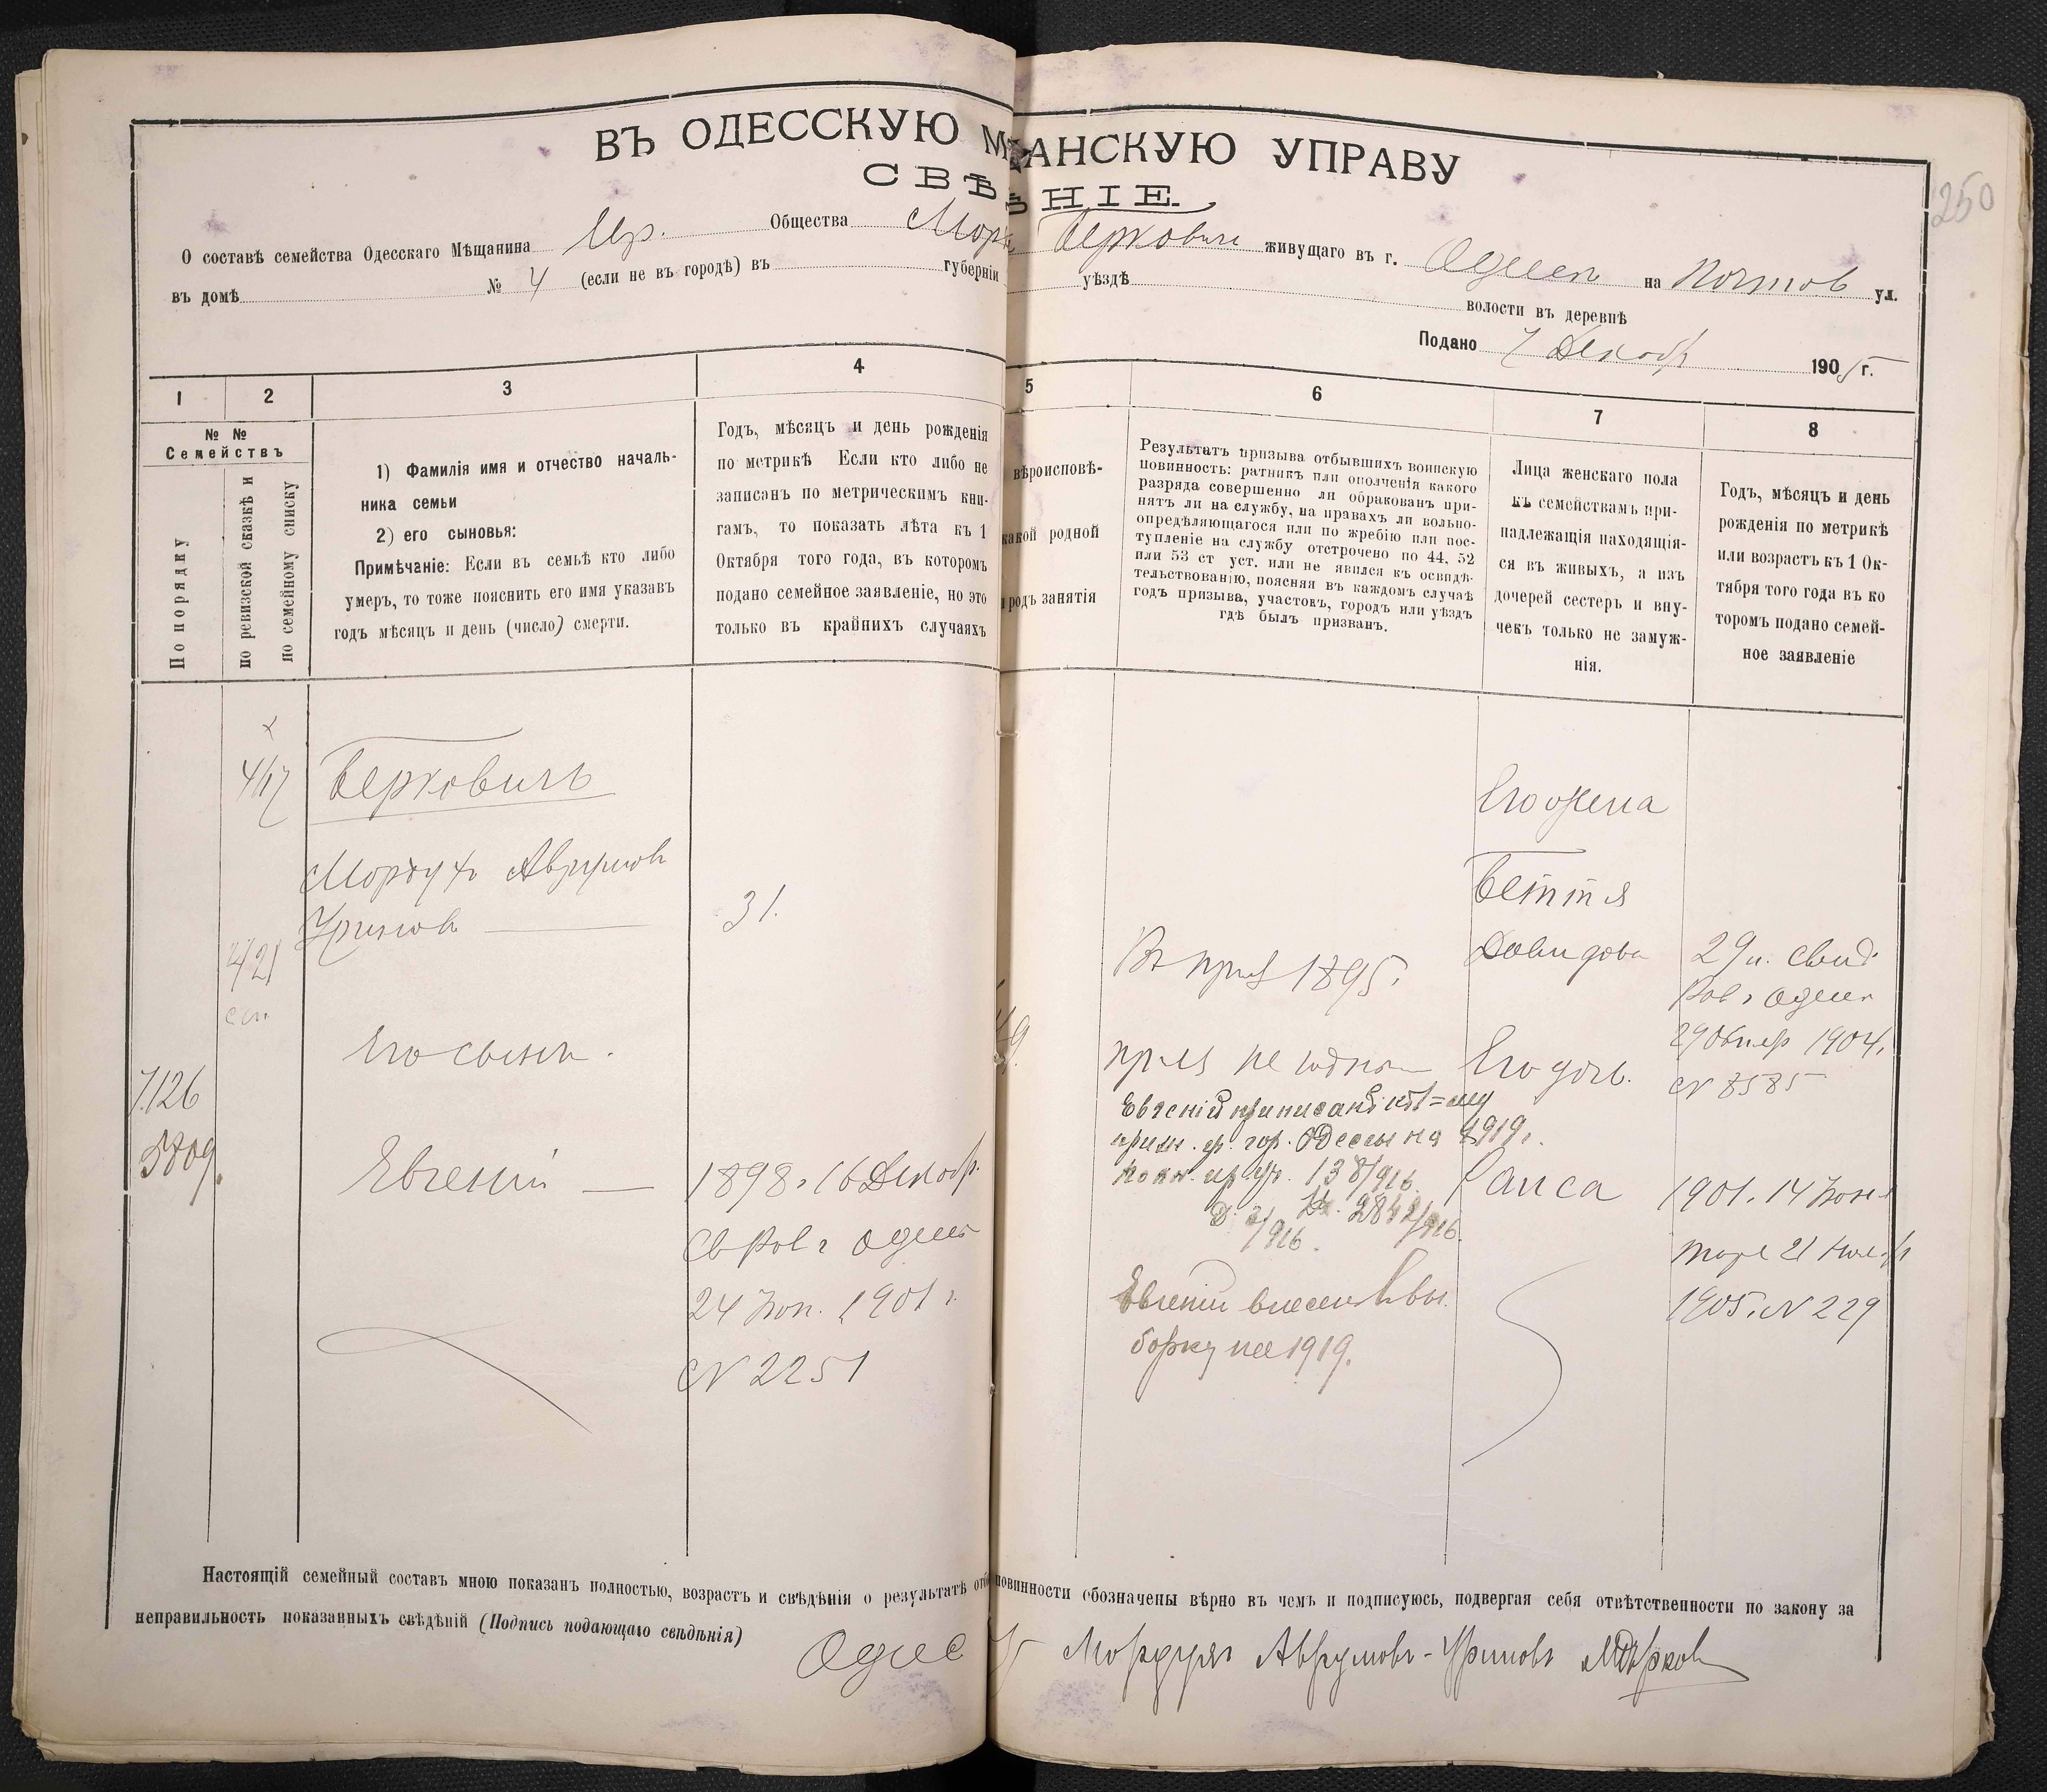 ВЪ ОДЕССКУЮ М АНСКУЮ УПРАВУ
СВѢ НІЕ.
250
О составѣ семейства Одесскаго Мѣщанина Общества Берковичъ живущаго въ г. Одессѣ на Почтов ул.
въ домѣ № 4 (если не въ городѣ) въ губерніи уѣздѣ волости въ деревнѣ
Подано 7 Декабр 1905 г.
1 2 3 4
№ №
Семействъ
По порядку
по ревизской сказкѣ и
по семейному списку
1) Фамилія имя и отчество началь-
ника семьи
2) его сыновья:
Примѣчаніе: Если въ семьѣ кто либо
умеръ, то тоже пояснить его имя указавъ
годъ мѣсяцъ и день (число) смерти.
Годъ, мѣсяцъ и день рожденія
по метрикѣ Если кто либо не
записанъ по метрическимъ кни-
гамъ, то показать лѣта къ 1
Октября того года, въ которомъ
подано семейное заявленіе, но это
только въ крайнихъ случаяхъ
5 6 7 8
вѣроисповѣ-
какой родной
и родъ занятія
Результатъ призыва отбывшихъ воинскую
повинность: ратникъ или ополченія какого
разряда совершенно ли обракованъ при-
нятъ ли на службу, на правахъ ли вольно-
опредѣляющагося или по жребію или пос-
тупленіе на службу отсрочено по 44, 52
или 53 ст уст. или не явился къ освидѣ-
тельствованію, поясняя въ каждомъ случаѣ
годъ призыва, участокъ, городъ или уѣздъ
гдѣ былъ призванъ.
Лица женскаго пола
къ семействамъ при-
надлежащія находящія-
ся въ живыхъ, а изъ
дочерей сестеръ и вну-
чекъ только не замуж-
нія.
Годъ, мѣсяцъ и день
рожденія по метрикѣ
или возрастъ къ 1 Ок-
тября того года въ ко
торомъ подано семей-
ное заявленіе
Берковичъ
Мордухъ Аврумовъ
Уриновъ — 31.
421
Его сынъ.
7126
5809.
Евгеній — 1898 г 16 Декабр.
Св Рав г Одессы
24 Іюн. 1901 г.
№ 2251
Въ приз 1895 г.
приз не годнъ
Евгеній приписанъ къ
приз. гор. Одессы на 1919 г.
138/916
2842/916
Евгеній внесенъ въ вы
борку на 1919.
Его жена
Беття
Давидова
29 л. свид.
Рав г Одессы
29 Октяр 1904 г.
№ 8585
Его доч.
Раиса 1901 г. 14 Іюня
1905 г. № 229
Настоящій семейный составъ мною показанъ полностью, возрастъ и свѣдѣнія о результатѣ отб повинности обозначены вѣрно въ чемъ и подписуюсь, подвергая себя отвѣтственности по закону за
неправильность показанныхъ свѣдѣній (Подпись подающаго свѣдѣнія)
Мордухъ Аврумовъ-Уриновъ